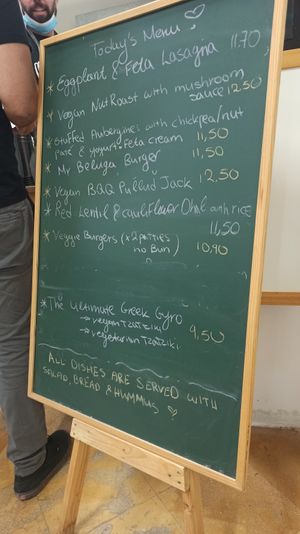 Today's Menu
* Eggplant & Feta Lasagna 11.70
* Vegan Nut Roast with mushroom
sauce 12.50
* Stuffed Aubergines with chickpea/nut
paté & yogurt-feta cream 11,50
* Mr Beluga Burger 11,50
* Vegan BBQ Pulled Jack 12,50
* Red Lentil & cauliflower Dhal with rice
11,50
* Veggie Burgers (x2 patties
no Bun) 10,90
* The Ultimate Greek Gyro
→ vegan Tzatziki 9,50
→ vegetarian Tzatziki
ALL DISHES ARE SERVED WITH
SALAD, BREAD & HUMMUS